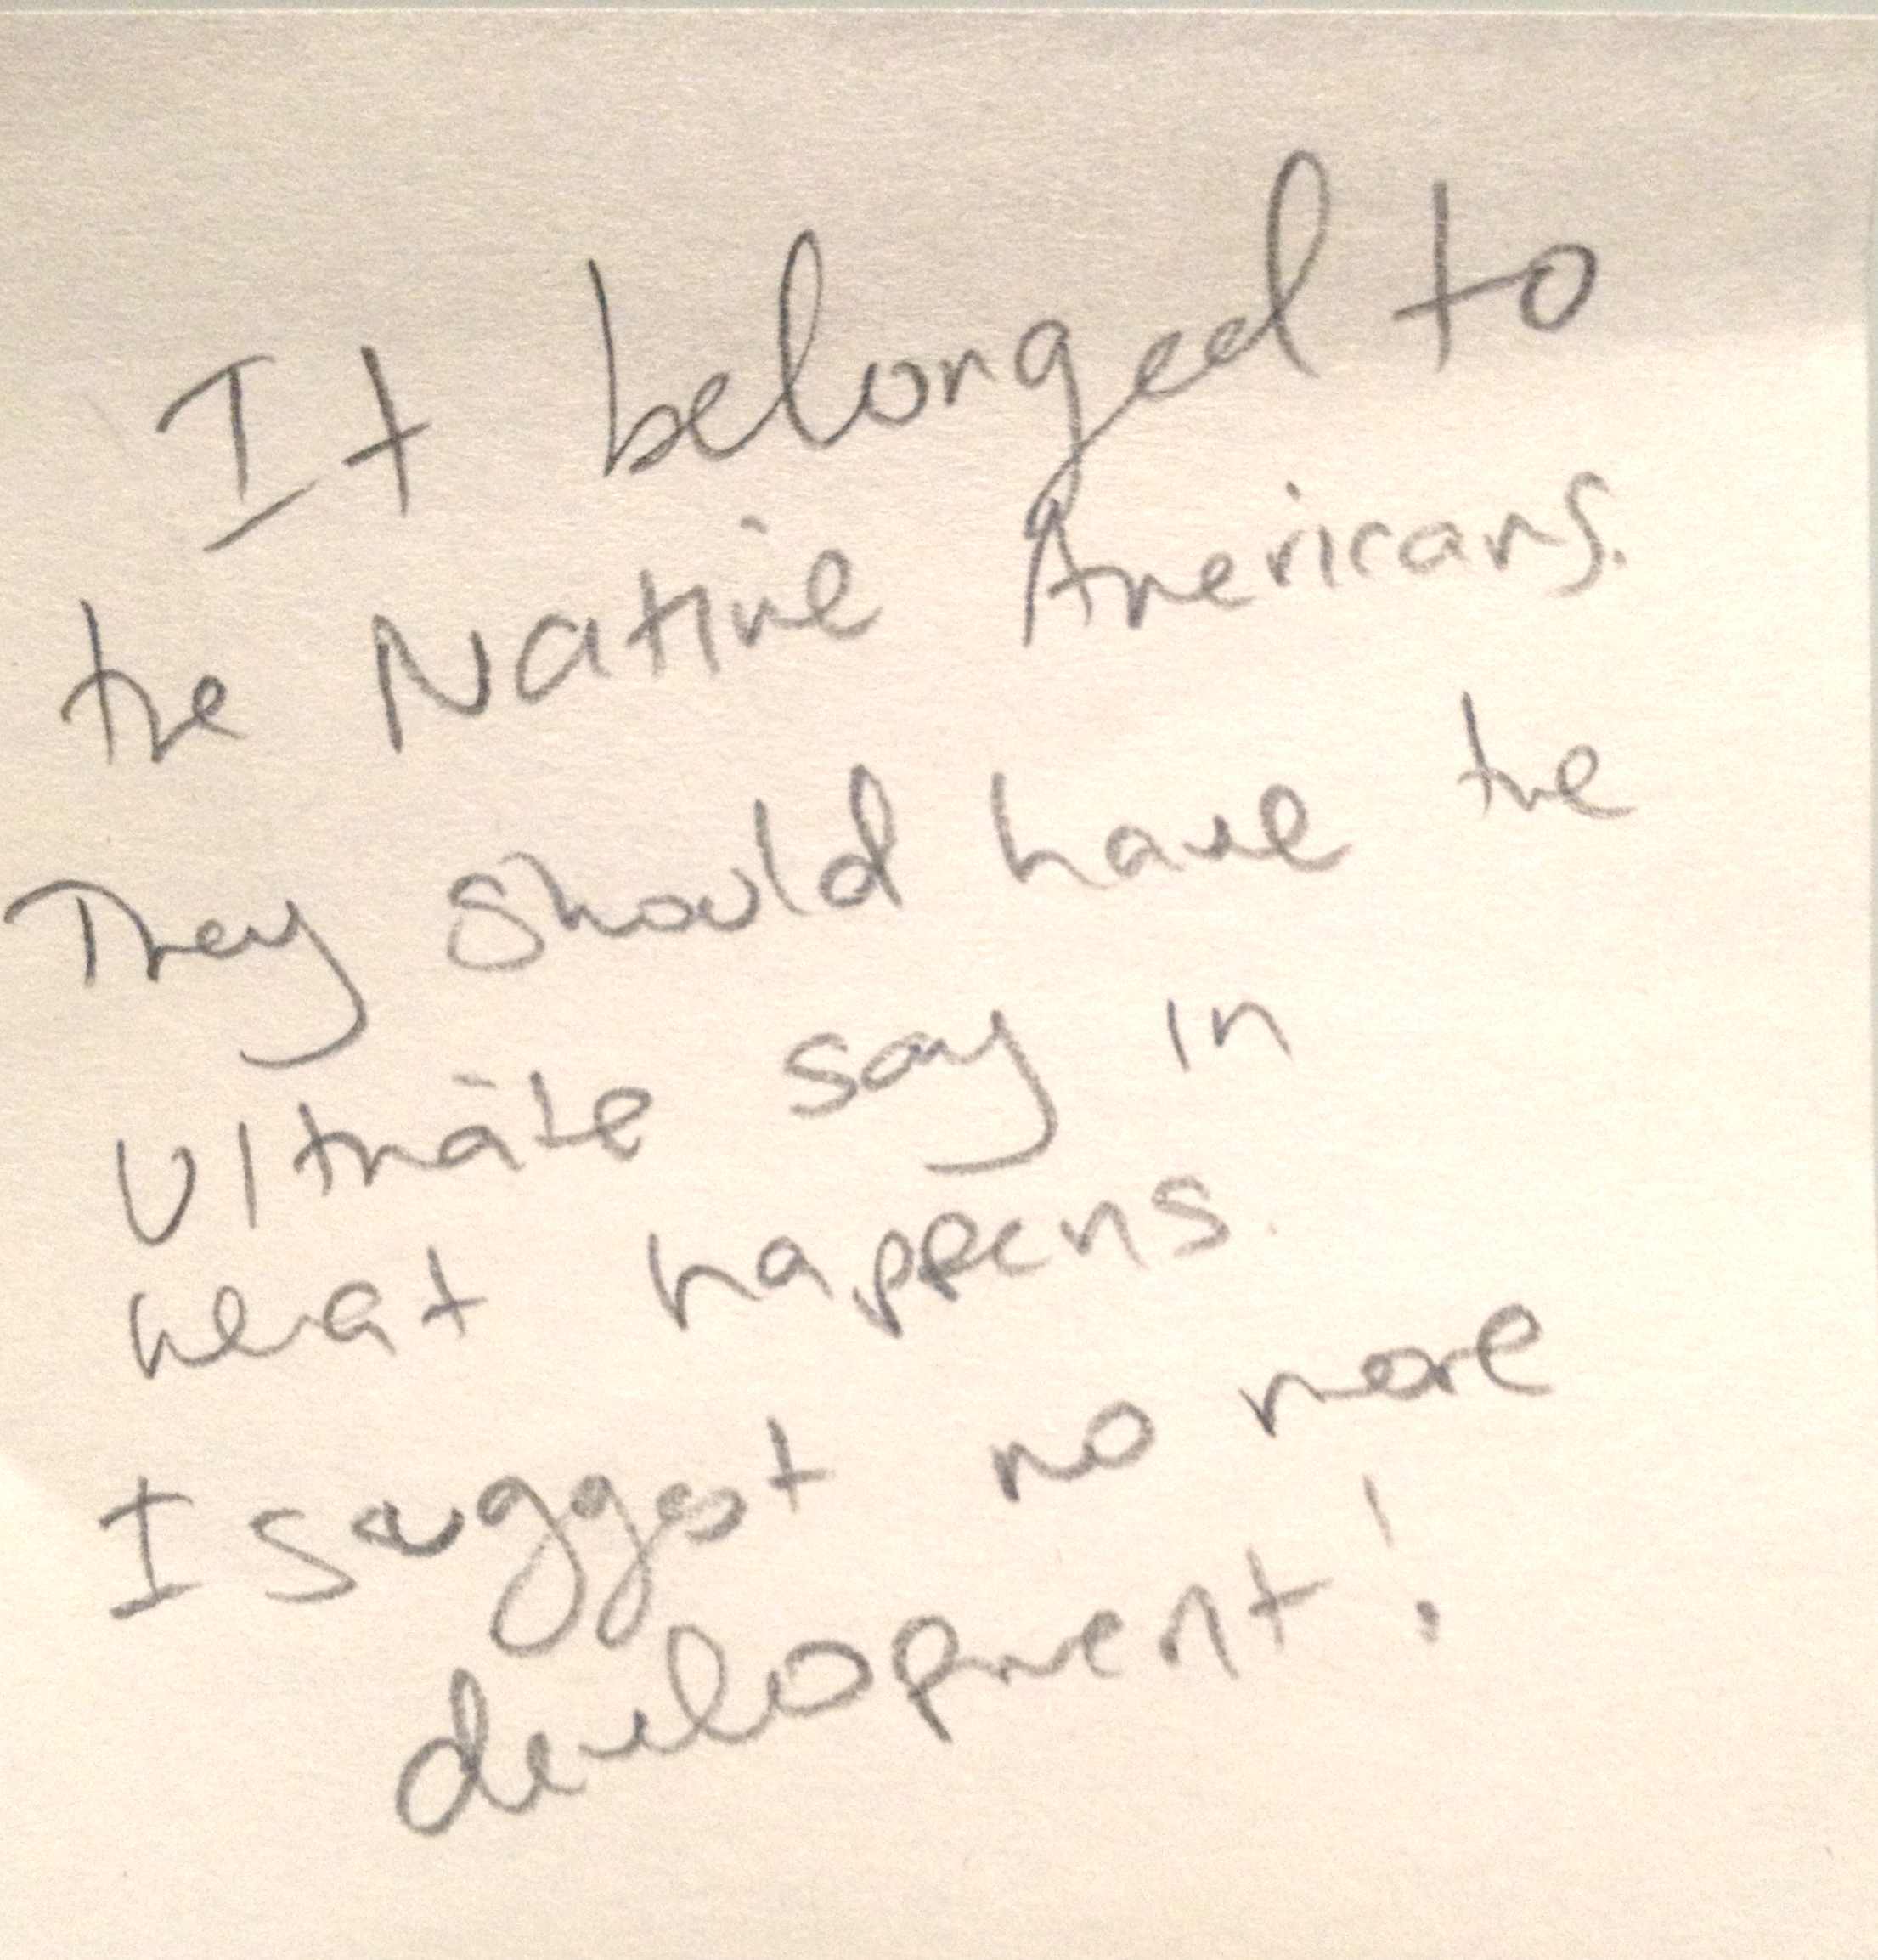 It belonged to
the Native Americans.
They should have the
Ultimate say in
what happens.
I suggest no more
development!